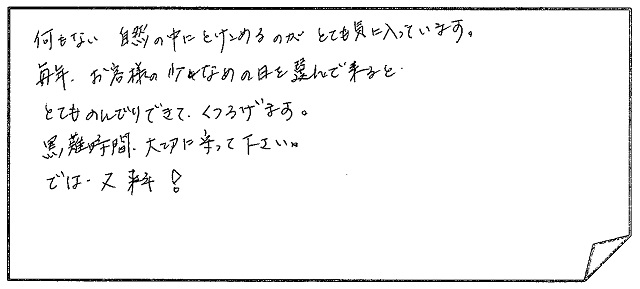 何もない 自然の中にとけこめるのが とても気に入っています。
毎年、お客様の少なめの日を選んで来ると
とてものんびりできて、くつろげます。
時間、大切に守って下さい。
では、又来年!